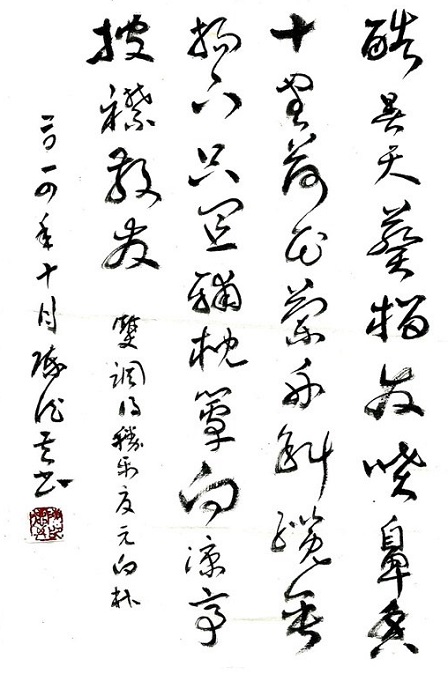 酷暑天葵榴发喷鼻香
十里荷花兰舟斜缆垂
杨下只宜铺枕簟向凉亭
披襟散发
雙調得勝乐夏元白朴
二〇一四年十月书